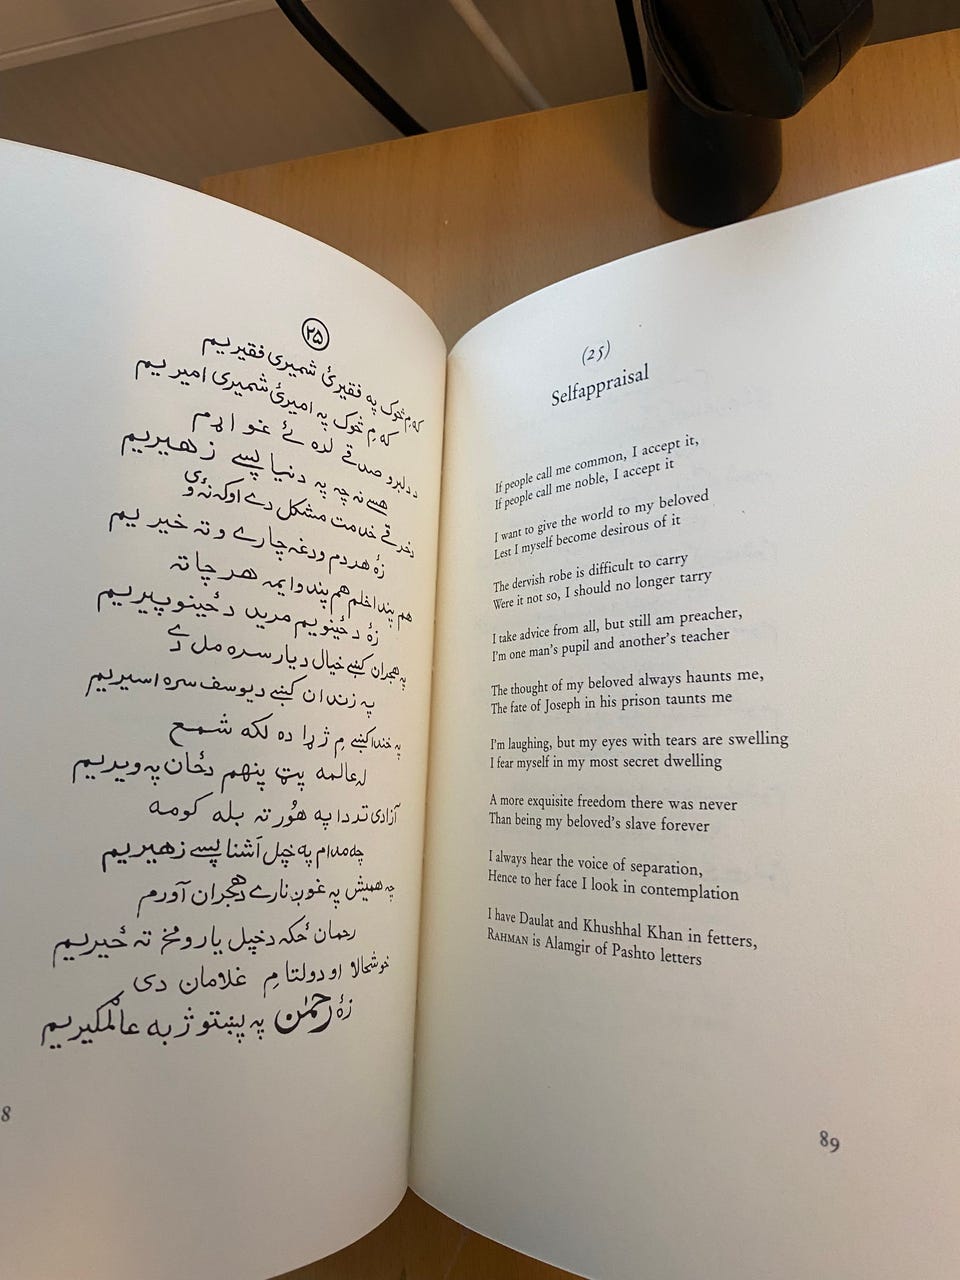 ۲۵
که مِ څوک په فقیرئ شمیری فقیر یم
که مِ څوک په امیرئ شمیری امیر یم
د دلبر و صدقے لره ئے غواړم
هسے نه چه په دنیا پسے زهیر یم
د خرقے خدمت مشکل دے اوکه نه وی
زۀ هر دم ودغه چارے وته خیر یم
هم پند اخلم هم پند وایمه هر چاته
زۀ د ځینو یم مرید د ځینو پیر یم
په هجران کښے خیال د یار سره مل دے
په زندان کښے د یوسف سره اسیر یم
په خندا کښے مِ ژړا ده لکه شمع
له عالمه پټ پنهم د ځان په ویر یم
آزادی تر دا په هُور ته بله کومه
چه مدام په خپل آشنا پسے زهیر یم
چه همیش په غوږ نارے د هجران آورم
رحمان ځکه د خپل یار و مخ ته ځیر یم
خوشحال او دولت مِ غلامان دی
زۀ رحمٰن په پښتو ژبه عالمګیر یم
8
(25)
Selfappraisal
If people call me common, I accept it,
If people call me noble, I accept it
I want to give the world to my beloved
Lest I myself become desirous of it
The dervish robe is difficult to carry
Were it not so, I should no longer tarry
I take advice from all, but still am preacher,
I'm one man's pupil and another's teacher
The thought of my beloved always haunts me,
The fate of Joseph in his prison taunts me
I'm laughing, but my eyes with tears are swelling
I fear myself in my most secret dwelling
A more exquisite freedom there was never
Than being my beloved's slave forever
I always hear the voice of separation,
Hence to her face I look in contemplation
I have Daulat and Khushhal Khan in fetters,
RAHMAN is Alamgir of Pashto letters
89